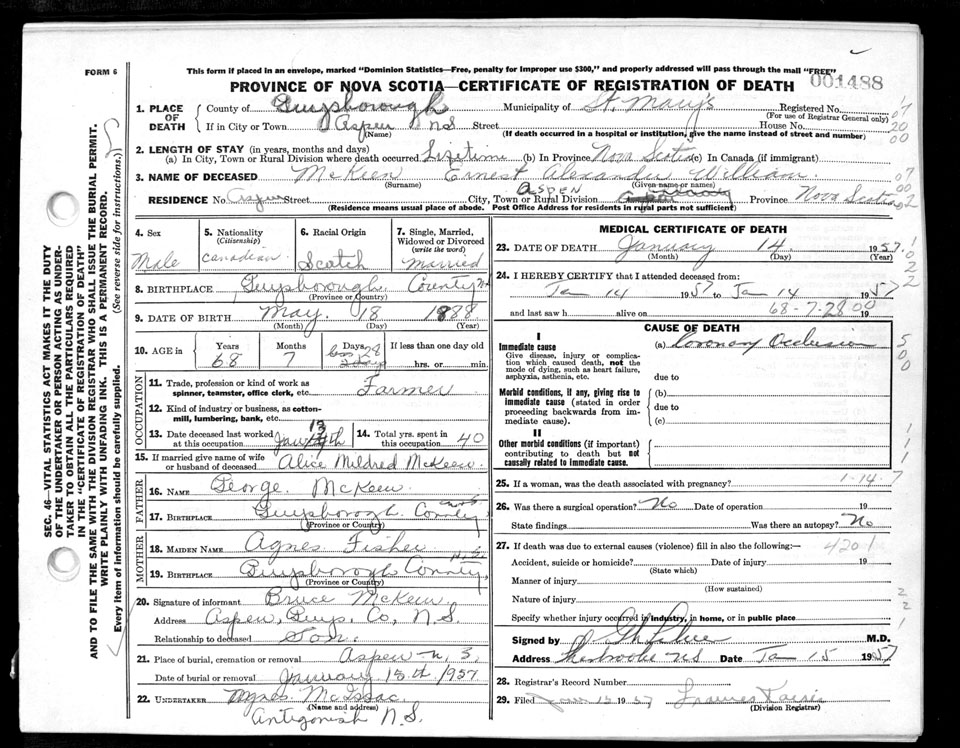 FORM 6
This form if placed in an envelope, marked "Dominion Statistics—Free, penalty for improper use $300," and properly addressed will pass through the mail "FREE"
PROVINCE OF NOVA SCOTIA—CERTIFICATE OF REGISTRATION OF DEATH
001488
SEC. 46—VITAL STATISTICS ACT MAKES IT THE DUTY
OF THE UNDERTAKER OR PERSON ACTING AS UNDER-
TAKER TO OBTAIN ALL THE PARTICULARS REQUIRED
IN THE "CERTIFICATE OF REGISTRATION OF DEATH"
AND TO FILE THE SAME WITH THE DIVISION REGISTRAR WHO SHALL ISSUE THE BURIAL PERMIT.
WRITE PLAINLY WITH UNFADING INK. THIS IS A PERMANENT RECORD.
Every item of information should be carefully supplied. (See reverse side for instructions.)
1. PLACE OF DEATH County of Guysborough Municipality of St. Mary's Registered No.
(For use of Registrar General only)
If in City or Town Aspen NS Street House No.
(Name) (If death occurred in a hospital or institution, give the name instead of street and number)
2. LENGTH OF STAY (in years, months and days)
(a) In City, Town or Rural Division where death occurred Lifetime (b) In Province Nova Scotia (c) In Canada (if immigrant)
3. NAME OF DECEASED McKeen Ernest Alexander William.
(Surname) (Given name or names)
RESIDENCE No. Aspen Street City, Town or Rural Division ASPEN Province Nova Scotia
(Residence means usual place of abode. Post Office Address for residents in rural parts not sufficient)
4. Sex Male
5. Nationality (Citizenship) Canadian
6. Racial Origin Scotch
7. Single, Married, Widowed or Divorced (write the word) Married
8. BIRTHPLACE Guysborough County NS
(Province or Country)
9. DATE OF BIRTH May 18 1888
(Month) (Day) (Year)
10. AGE in Years 68 Months 7 Days 28 If less than one day hrs. or min.
OCCUPATION
11. Trade, profession or kind of work as spinner, teamster, office clerk, etc. Farmer
12. Kind of industry or business, as cotton-mill, lumbering, bank, etc.
13. Date deceased last worked at this occupation Jan 13th
14. Total yrs. spent in this occupation 40
15. If married give name of wife or husband of deceased Alice Mildred McKeen.
FATHER
16. NAME George McKeen
17. BIRTHPLACE Guysborogh County
(Province or Country)
MOTHER
18. MAIDEN NAME Agnes Fisher
19. BIRTHPLACE Guysborogh County, N.S.
(Province or Country)
20. Signature of informant Bruce McKeen
Address Aspen, Guys. Co, N.S.
Relationship to deceased Son.
21. Place of burial, cremation or removal Aspen N.S.
Date of burial or removal January 15th 1957
22. UNDERTAKER McIssac
(Name and address)
Antigonish N.S.
MEDICAL CERTIFICATE OF DEATH
23. DATE OF DEATH January 14 1957
(Month) (Day) (Year)
24. I HEREBY CERTIFY that I attended deceased from:
Jan 14 1957 to Jan 14 1957
and last saw h alive on 19
68-7-28 00
CAUSE OF DEATH
I
Immediate cause (a) Coronary Occlusion
Give disease, injury or complication which caused death, not the mode of dying, such as heart failure, asphyxia, asthenia, etc.
due to
Morbid conditions, if any, giving rise to immediate cause (stated in order proceeding backwards from immediate cause).
(b)
due to
(c)
II
Other morbid conditions (if important) contributing to death but not causally related to immediate cause.
25. If a woman, was the death associated with pregnancy?
1-14-7
26. Was there a surgical operation? No Date of operation 19
State findings Was there an autopsy? No
27. If death was due to external causes (violence) fill in also the following:—
420.1
Accident, suicide or homicide? Date of injury 19
(State which)
Manner of injury
(How sustained)
Nature of injury
Specify whether injury occurred in industry, in home, or in public place
Signed by M.D.
Address Sherbrooke NS Date Jan 15 1957
28. Registrar's Record Number
29. Filed Jan 15 1957
(Division Registrar)